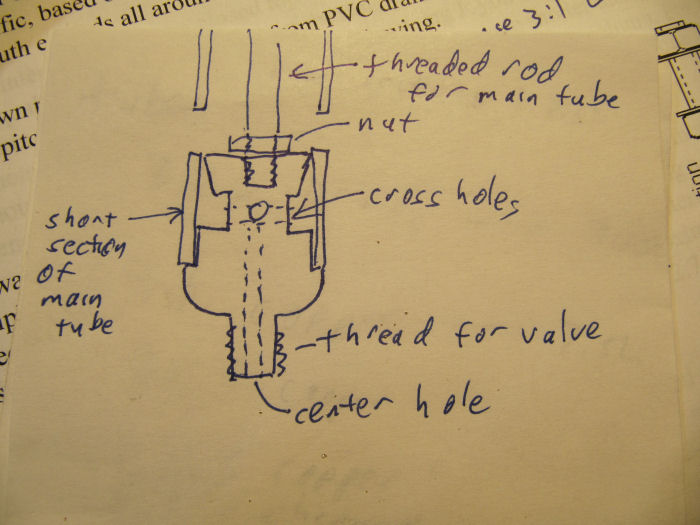 fic, based
ds all arou
from PVC drai
uth e
ving.
3:1
wn
pitc
threaded rod
for main tube
nut
cross holes
short
section
of
main
tube
thread for valve
center hole